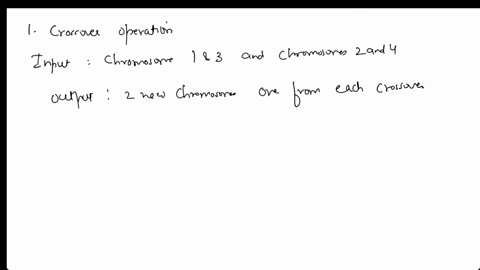 1. Crossover operation
Input : Chromosome 1 & 3 and Chromosomes 2 and 4
output : 2 new Chromosomes one from each crossover